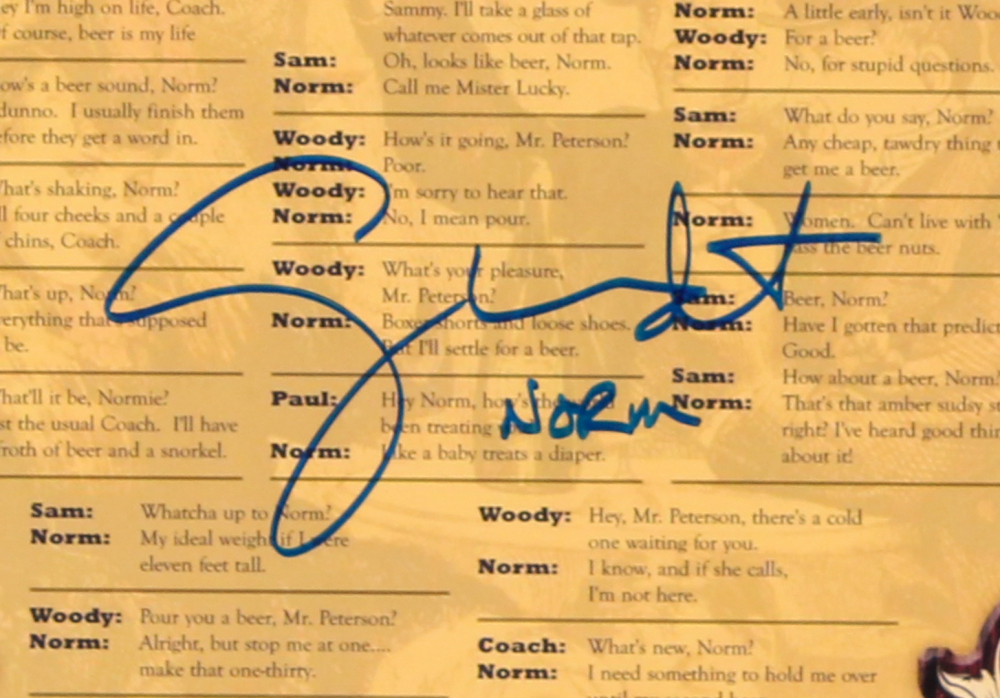 ey I'm high on life, Coach.
f course, beer is my life
ow's a beer sound, Norm?
dunno. I usually finish them
efore they get a word in.
hat's shaking, Norm?
ll four cheeks and a couple
chins, Coach.
hat's up, Norm?
verything that's supposed
be.
hat'll it be, Normie?
st the usual Coach. I'll have
roth of beer and a snorkel.
Sammy. I'll take a glass of
whatever comes out of that tap.
Sam: Oh, looks like beer, Norm.
Norm: Call me Mister Lucky.
Woody: How's it going, Mr. Peterson?
Norm: Poor.
Woody: I'm sorry to hear that.
Norm: No, I mean pour.
Woody: What's your pleasure,
Mr. Peterson?
Norm: Boxer shorts and loose shoes.
But I'll settle for a beer.
Paul: Hey Norm, how's the world
been treating
Norm: Like a baby treats a diaper.
Norm: A little early, isn't it Woo
Woody: For a beer?
Norm: No, for stupid questions.
Sam: What do you say, Norm?
Norm: Any cheap, tawdry thing
get me a beer.
Norm: Women. Can't live with
pass the beer nuts.
Sam: Beer, Norm?
Norm: Have I gotten that predict
Good.
Sam: How about a beer, Norm?
Norm: That's that amber sudsy s
right? I've heard good thin
about it!
NORM
Sam: Whatcha up to Norm?
Norm: My ideal weight if I were
eleven feet tall.
Woody: Pour you a beer, Mr. Peterson?
Norm: Alright, but stop me at one....
make that one-thirty.
Woody: Hey, Mr. Peterson, there's a cold
one waiting for you.
Norm: I know, and if she calls,
I'm not here.
Coach: What's new, Norm?
Norm: I need something to hold me over